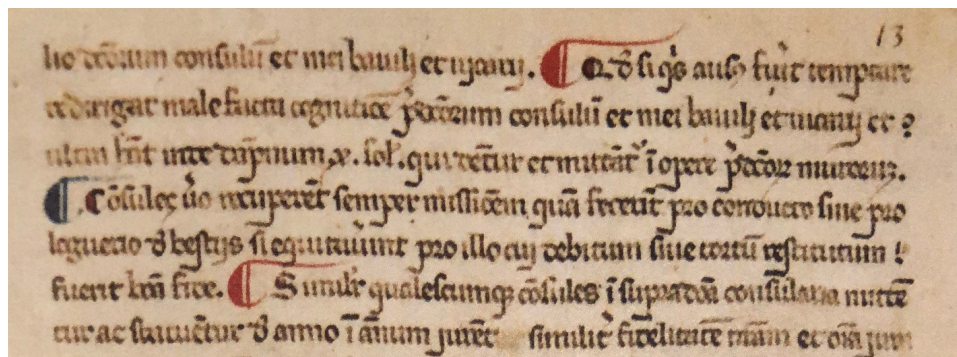 13
lio dcõrum consulũ et mei baiulj et uicarij. ¶ Q, đ si q̇s ausꝰ fũit temptare
redirigat male facta cognitiõe p̃dcõrum consulũ et mei baiulj et uicarij et
ultra hñt inde .x. sol. qui dent̃ur et mittãt̃ ĩ opere p̃dcõꝝ
¶ Cõsules ũo recuperẽt semper missiõem quã fecerĩt pro conducto siue pro
loguerio đ bestijs si equitauĩnt pro illo cuj debitum siue tortũ restitutum
fuerit bõa fide. ¶ Similr̃ qualescumqꝫ cõsules ĩ supradcã consularia mittẽ
tur ac statuẽtur đ anno ĩ ãnum jurẽt similit̃ fidelitatẽ meã̃m et om̃ia jura